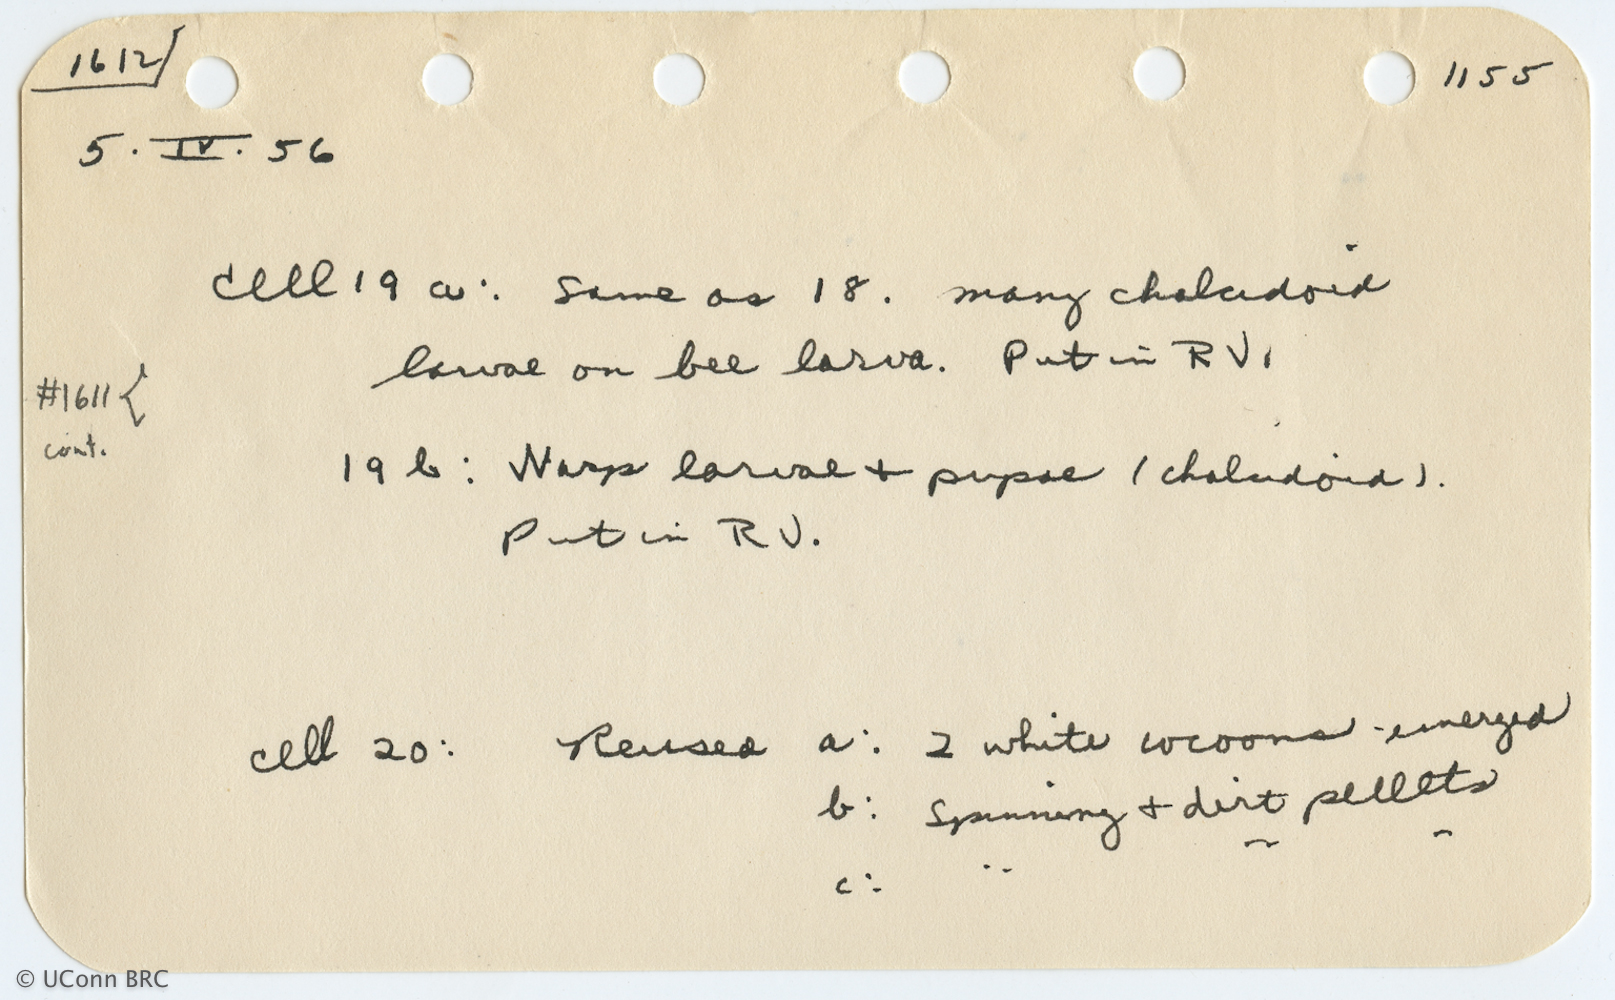 1612 1155
5. IV. 56
Cell 19 a: Same as 18. Many chalcidoid
larvae on bee larva. Put in RV.
#1611 {
cont.
19 b: Wasp larvae + pupae (chalcidoid).
Put in RV.
Cell 20: Reused a: 2 white cocoons - emerged
b: Spinning + dirt pellets
c: " " "
© UConn BRC